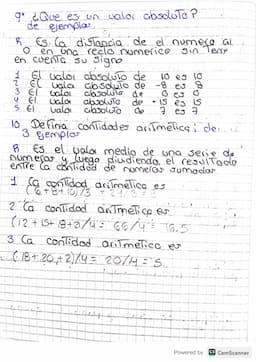 9° ¿Que es un valor absoluto?
de ejemplos.
R Es la distancia de el numero al
0 en una recta numerica sin tener
en cuenta su signo
1 El valor absoluto de 10 es 10
2 El valor absoluto de -8 es 8
3 El valor absoluto de 0 es 0
4 El valor absoluto de -15 es 15
5 El valor absoluto de 7 es 7
10 Defina cantidades aritmética; de
3 ejemplos
R Es el valor medio de una serie de
numeros y luego dividiendo el resultado
entre la cantidad de numeros sumados
1 La cantidad aritmética es
2 La cantidad aritmética es
3 La cantidad aritmética es
(18+20+2)/4= 20/4= 5
Powered by CS CamScanner